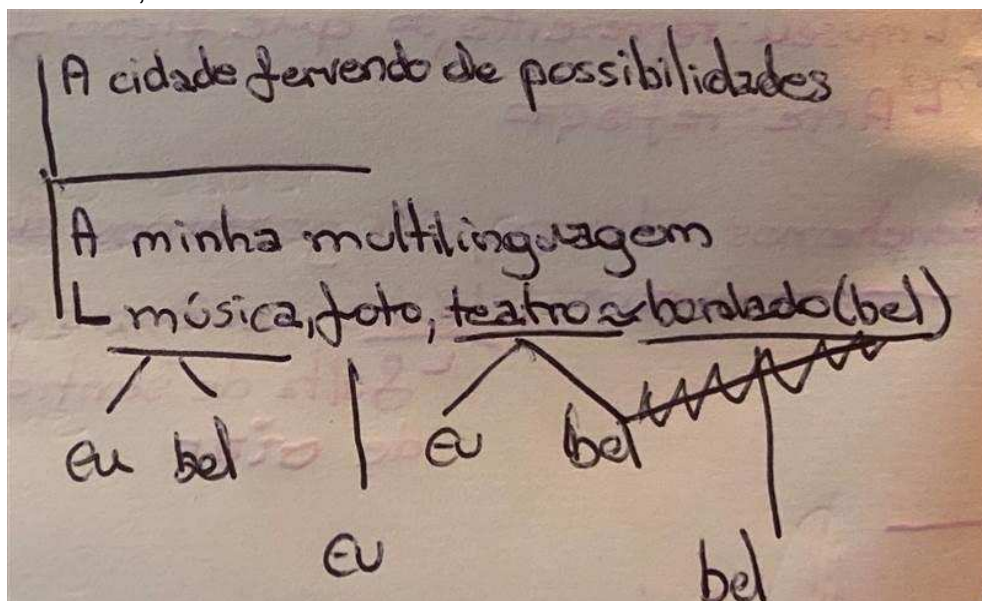 A cidade fervendo de possibilidades
A minha multilinguagem
música, foto, teatro ~ bordado (bel)
eu bel eu bel
eu bel